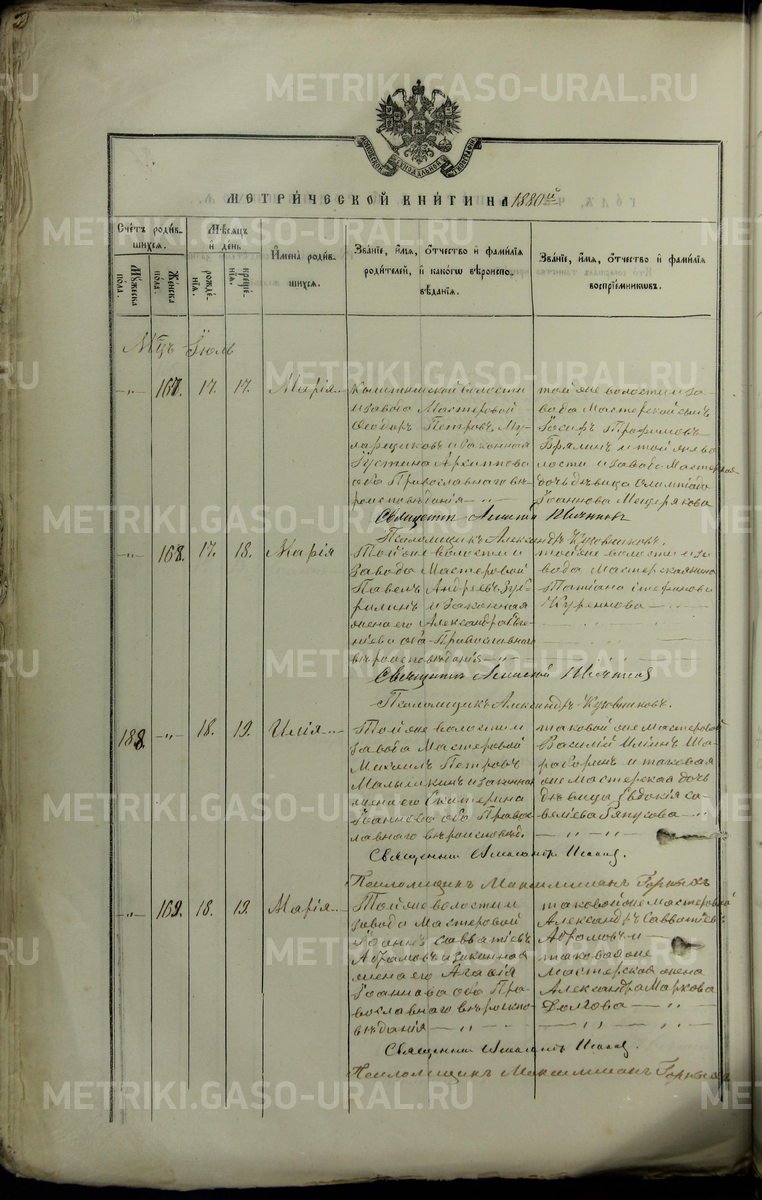 METRIKI.GASO-URAL.RU
МЕТРИ́ЧЕСКОЙ КНИ́ГИ НА 1880й
Сче́тъ роди́в-
шихсѧ.
Му́жеска
пола.
Же́нска
пола.
Мѣ́сѧцъ
и҆ день
рожде́-
нїѧ.
креще́-
нїѧ.
И҆мена̀ роди́в-
шихсѧ.
Зва́нїе, и҆́мѧ, ѻ҆́тчество и҆ фами́лїѧ
роди́телей, и҆ како́гѡ вѣроиспо-
вѣ́данїѧ.
Зва́нїе, и҆́мѧ, ѻ҆́тчество и҆ фами́лїѧ
воспрїе́мникѡвъ.
Мцъ Іюль
167. 17. 17. Марія
Кыштымской волости
и завода Мастеровой
Ѳеодоръ Петровъ
и законная
Іустина Архиппова
оба Православнаго вѣ-
роисповѣданія
той же волости и за-
вода Мастерской сынъ
Іосифъ Трофимовъ
и той же во
лости и завода Мастерская
дочь дѣвица Олимпіада
Іоаннова Мещерякова
Священникъ Алексій
Псаломщикъ Александръ
168. 17. 18. Марія
Той же волости и
завода Мастеровой
Павелъ Андреевъ
и законная
жена его Александра
оба Православнаго
вѣроисповѣданія
той же волости и за
вода Мастерская жена
Татіана Стефанова
Куренкова
Священникъ Алексій
Псаломщикъ Александръ
188. 18. 19. Илія
Той же волости и
завода Мастеровой
Михаилъ Петровъ
и законная
жена его Екатерина
Іоаннова оба Правос
лавнаго вѣроисповѣд.
таковой же мастеровой
Василій Ильинъ
и таковая
же мастерская дочь
дѣвица Евдокія Са-
веліева
Священникъ Александръ
Псаломщикъ Максимиліанъ
169. 18. 19. Марія
Той же волости и
завода Мастеровой
Іоаннъ Савватіевъ
Абрамовъ и законная
жена его Агаѳія
Іоаннова оба Пра-
вославнаго вѣроиспо-
вѣданія
таковой же мастеровой
Александръ Савватіевъ
Абрамовъ и
таковая же
мастерская жена
Александра Маркова
Долгова
Священникъ Александръ
Псаломщикъ Максимиліанъ